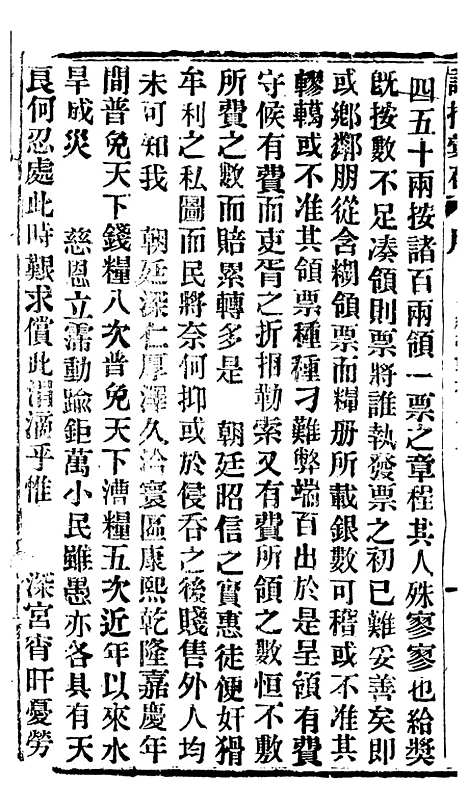 四五十兩按諸百兩領一票之章程其人殊寥寥也給獎
既按數不足湊領則票將誰執發票之初已難妥善矣即
或鄉鄰朋從含糊領票而糧册所載銀數可稽或不准其
轇轕或不准其領票種種刁難弊端百出於是呈領有費
守候有費而吏胥之折捐勒索又有費所領之數恒不敷
所費之數而賠累轉多是　朝廷昭信之實惠徒便奸猾
牟利之私圖而民將奈何抑或於侵吞之後賤售外人均
未可知我　朝廷深仁厚澤久洽寰區康熙乾隆嘉慶年
間普免天下錢糧八次普免天下漕糧五次近年以來水
旱成災　慈恩立霈動踰鉅萬小民雖愚亦各具有天
良何忍處此時艱求償此涓滴乎惟　深宮宵旰憂勞